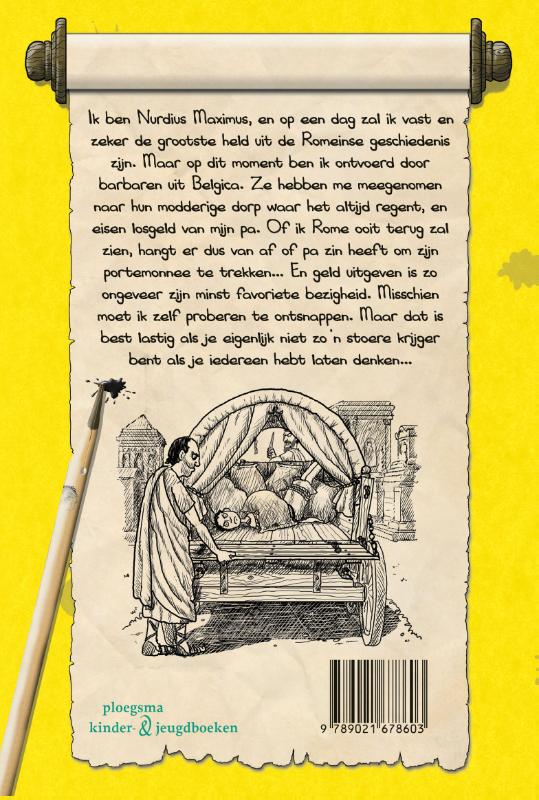 Ik ben Nurdius Maximus, en op een dag zal ik vast en
zeker de grootste held uit de Romeinse geschiedenis
zijn. Maar op dit moment ben ik ontvoerd door
barbaren uit Belgica. Ze hebben me meegenomen
naar hun modderige dorp waar het altijd regent, en
eisen losgeld van mijn pa. Of ik Rome ooit terug zal
zien, hangt er dus van af of pa zin heeft om zijn
portemonnee te trekken... En geld uitgeven is zo
ongeveer zijn minst favoriete bezigheid. Misschien
moet ik zelf proberen te ontsnappen. Maar dat is
best lastig als je eigenlijk niet zo'n stoere krijger
bent als je iedereen hebt laten denken...
ploegsma
kinder- & jeugdboeken
9 789021 678603